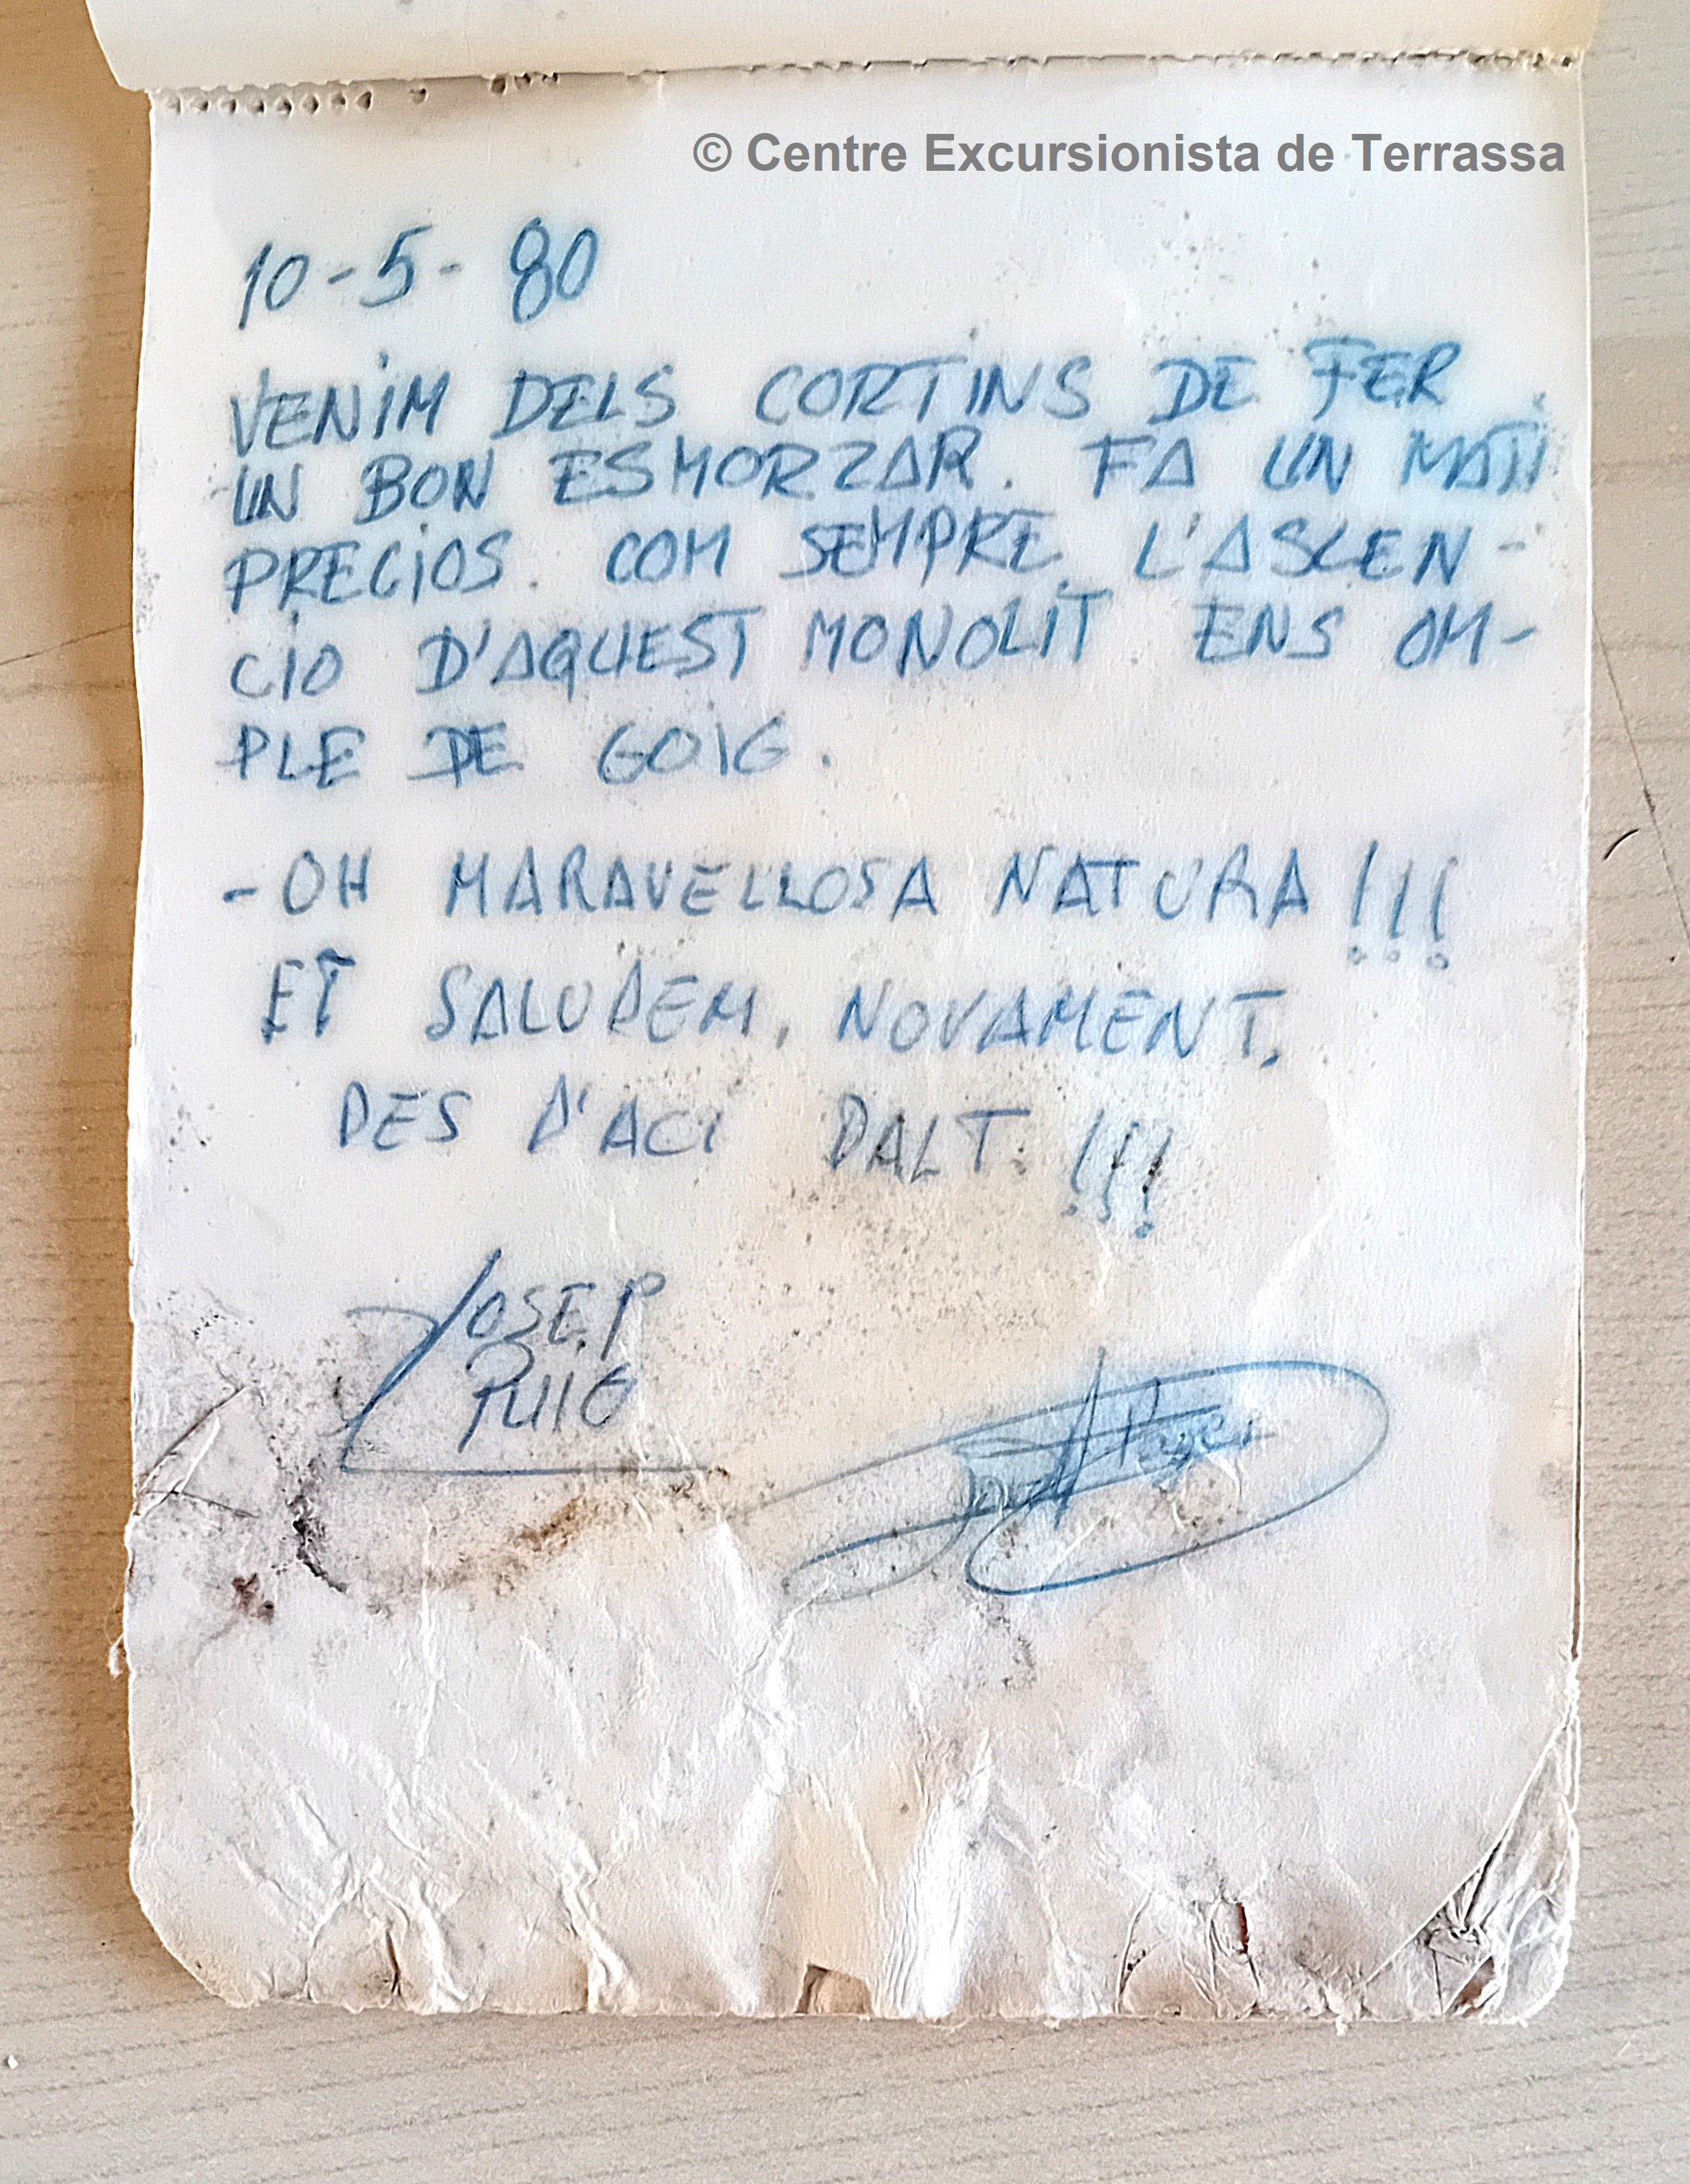 © Centre Excursionista de Terrassa
10-5-80
VENIM DELS CORTINS DE FER
UN BON ESMORZAR. FA UN MATI
PRECIOS. COM SEMPRE. L'ASCEN-
CIO D'AQUEST MONOLIT ENS OM-
PLE DE GOIG.
-OH MARAVELLOSA NATURA!!!
ET SALUDEM, NOVAMENT,
DES D'ACI DALT.!!!
JOSEP
PUIG